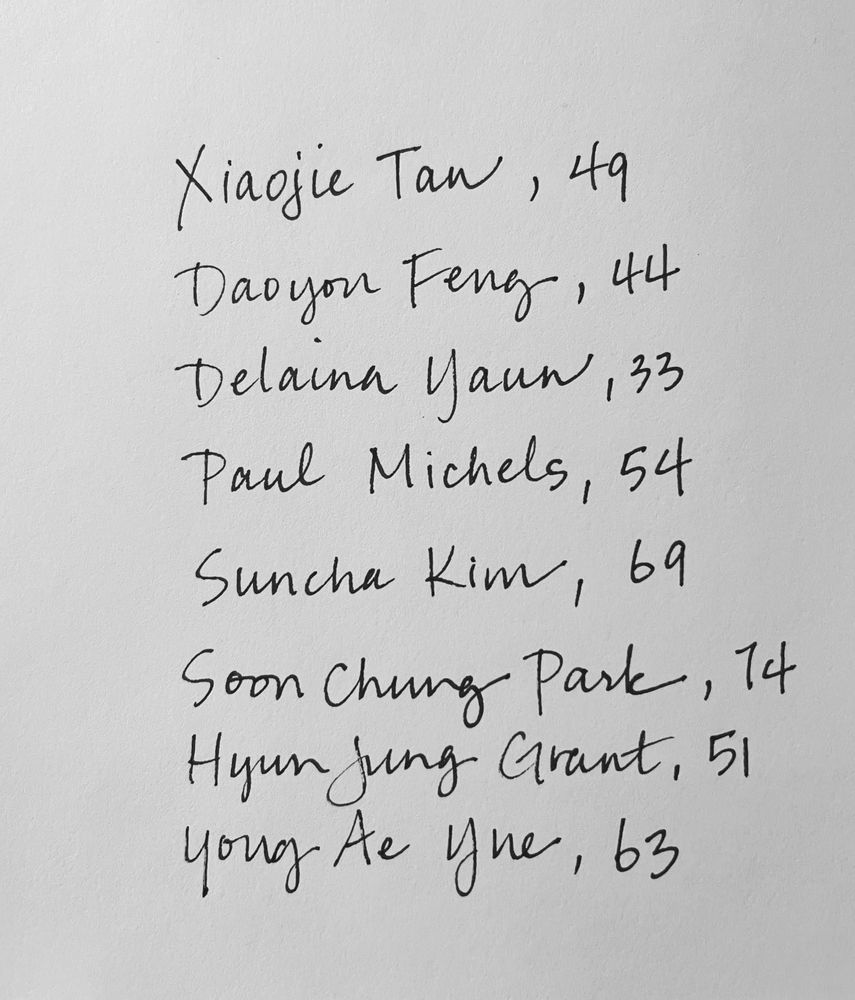 Xiaojie Tan, 49
Daoyon Feng, 44
Delaina Yaun, 33
Paul Michels, 54
Suncha Kim, 69
Soon Chung Park, 74
Hyun Jung Grant, 51
Yong Ae Yue, 63